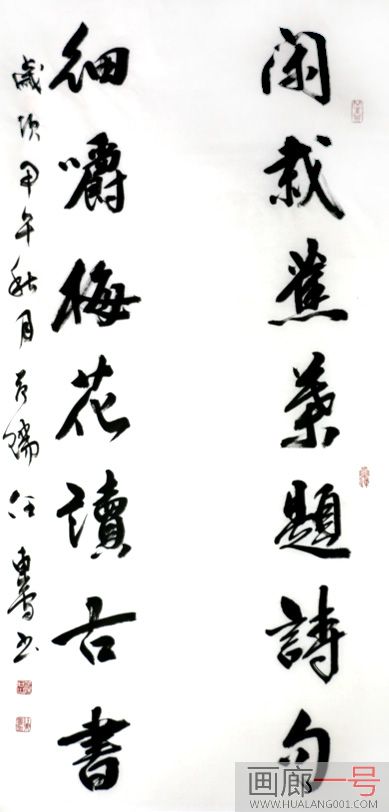 闲栽蕉葉题詩句
细嚼梅花讀古書
歲次甲午秋月
画廊一号
WWW.HUALANG001.COM